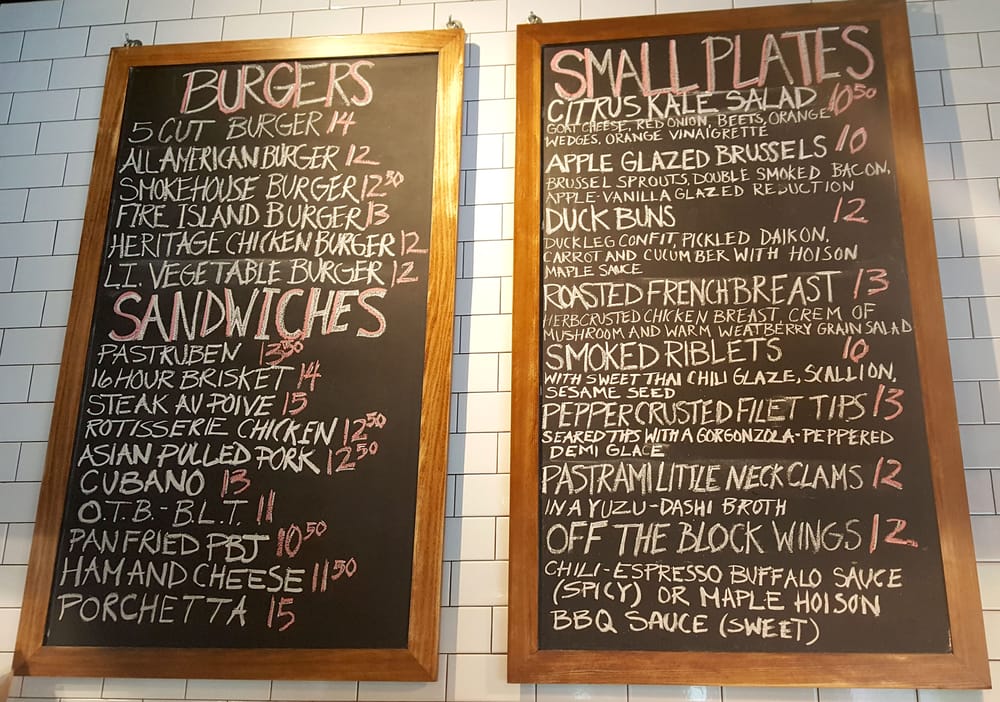 BURGERS
5 CUT BURGER 14
ALL AMERICAN BURGER 12
SMOKEHOUSE BURGER 12 50
FIRE ISLAND BURGER 13
HERITAGE CHICKEN BURGER 12
L.I. VEGETABLE BURGER 12
SANDWICHES
PASTRUBEN 13 50
16 HOUR BRISKET 14
STEAK AU POIVE 15
ROTISSERIE CHICKEN 12 50
ASIAN PULLED PORK 12 50
CUBANO 13
O.T.B.-B.L.T. 11
PAN FRIED PBJ 10 50
HAM AND CHEESE 11 50
PORCHETTA 15
SMALL PLATES
CITRUS KALE SALAD 10 50
GOAT CHEESE, RED ONION, BEETS, ORANGE
WEDGES, ORANGE VINAIGRETTE
APPLE GLAZED BRUSSELS 10
BRUSSEL SPROUTS, DOUBLE SMOKED BACON,
APPLE-VANILLA GLAZED REDUCTION
DUCK BUNS 12
DUCK LEG CONFIT, PICKLED DAIKON,
CARROT AND CUCUMBER WITH HOISON
MAPLE SAUCE
ROASTED FRENCH BREAST 13
HERBCRUSTED CHICKEN BREAST, CREM OF
MUSHROOM AND WARM WEATBERRY GRAIN SALAD
SMOKED RIBLETS 10
WITH SWEET THAI CHILI GLAZE, SCALLION,
SESAME SEED
PEPPER CRUSTED FILET TIPS 13
SEARED TIPS WITH A GORGONZOLA-PEPPERED
DEMI GLACE
PASTRAMI LITTLE NECK CLAMS 12
IN A YUZU-DASHI BROTH
OFF THE BLOCK WINGS 12
CHILI-ESPRESSO BUFFALO SAUCE
(SPICY) OR MAPLE HOISON
BBQ SAUCE (SWEET)